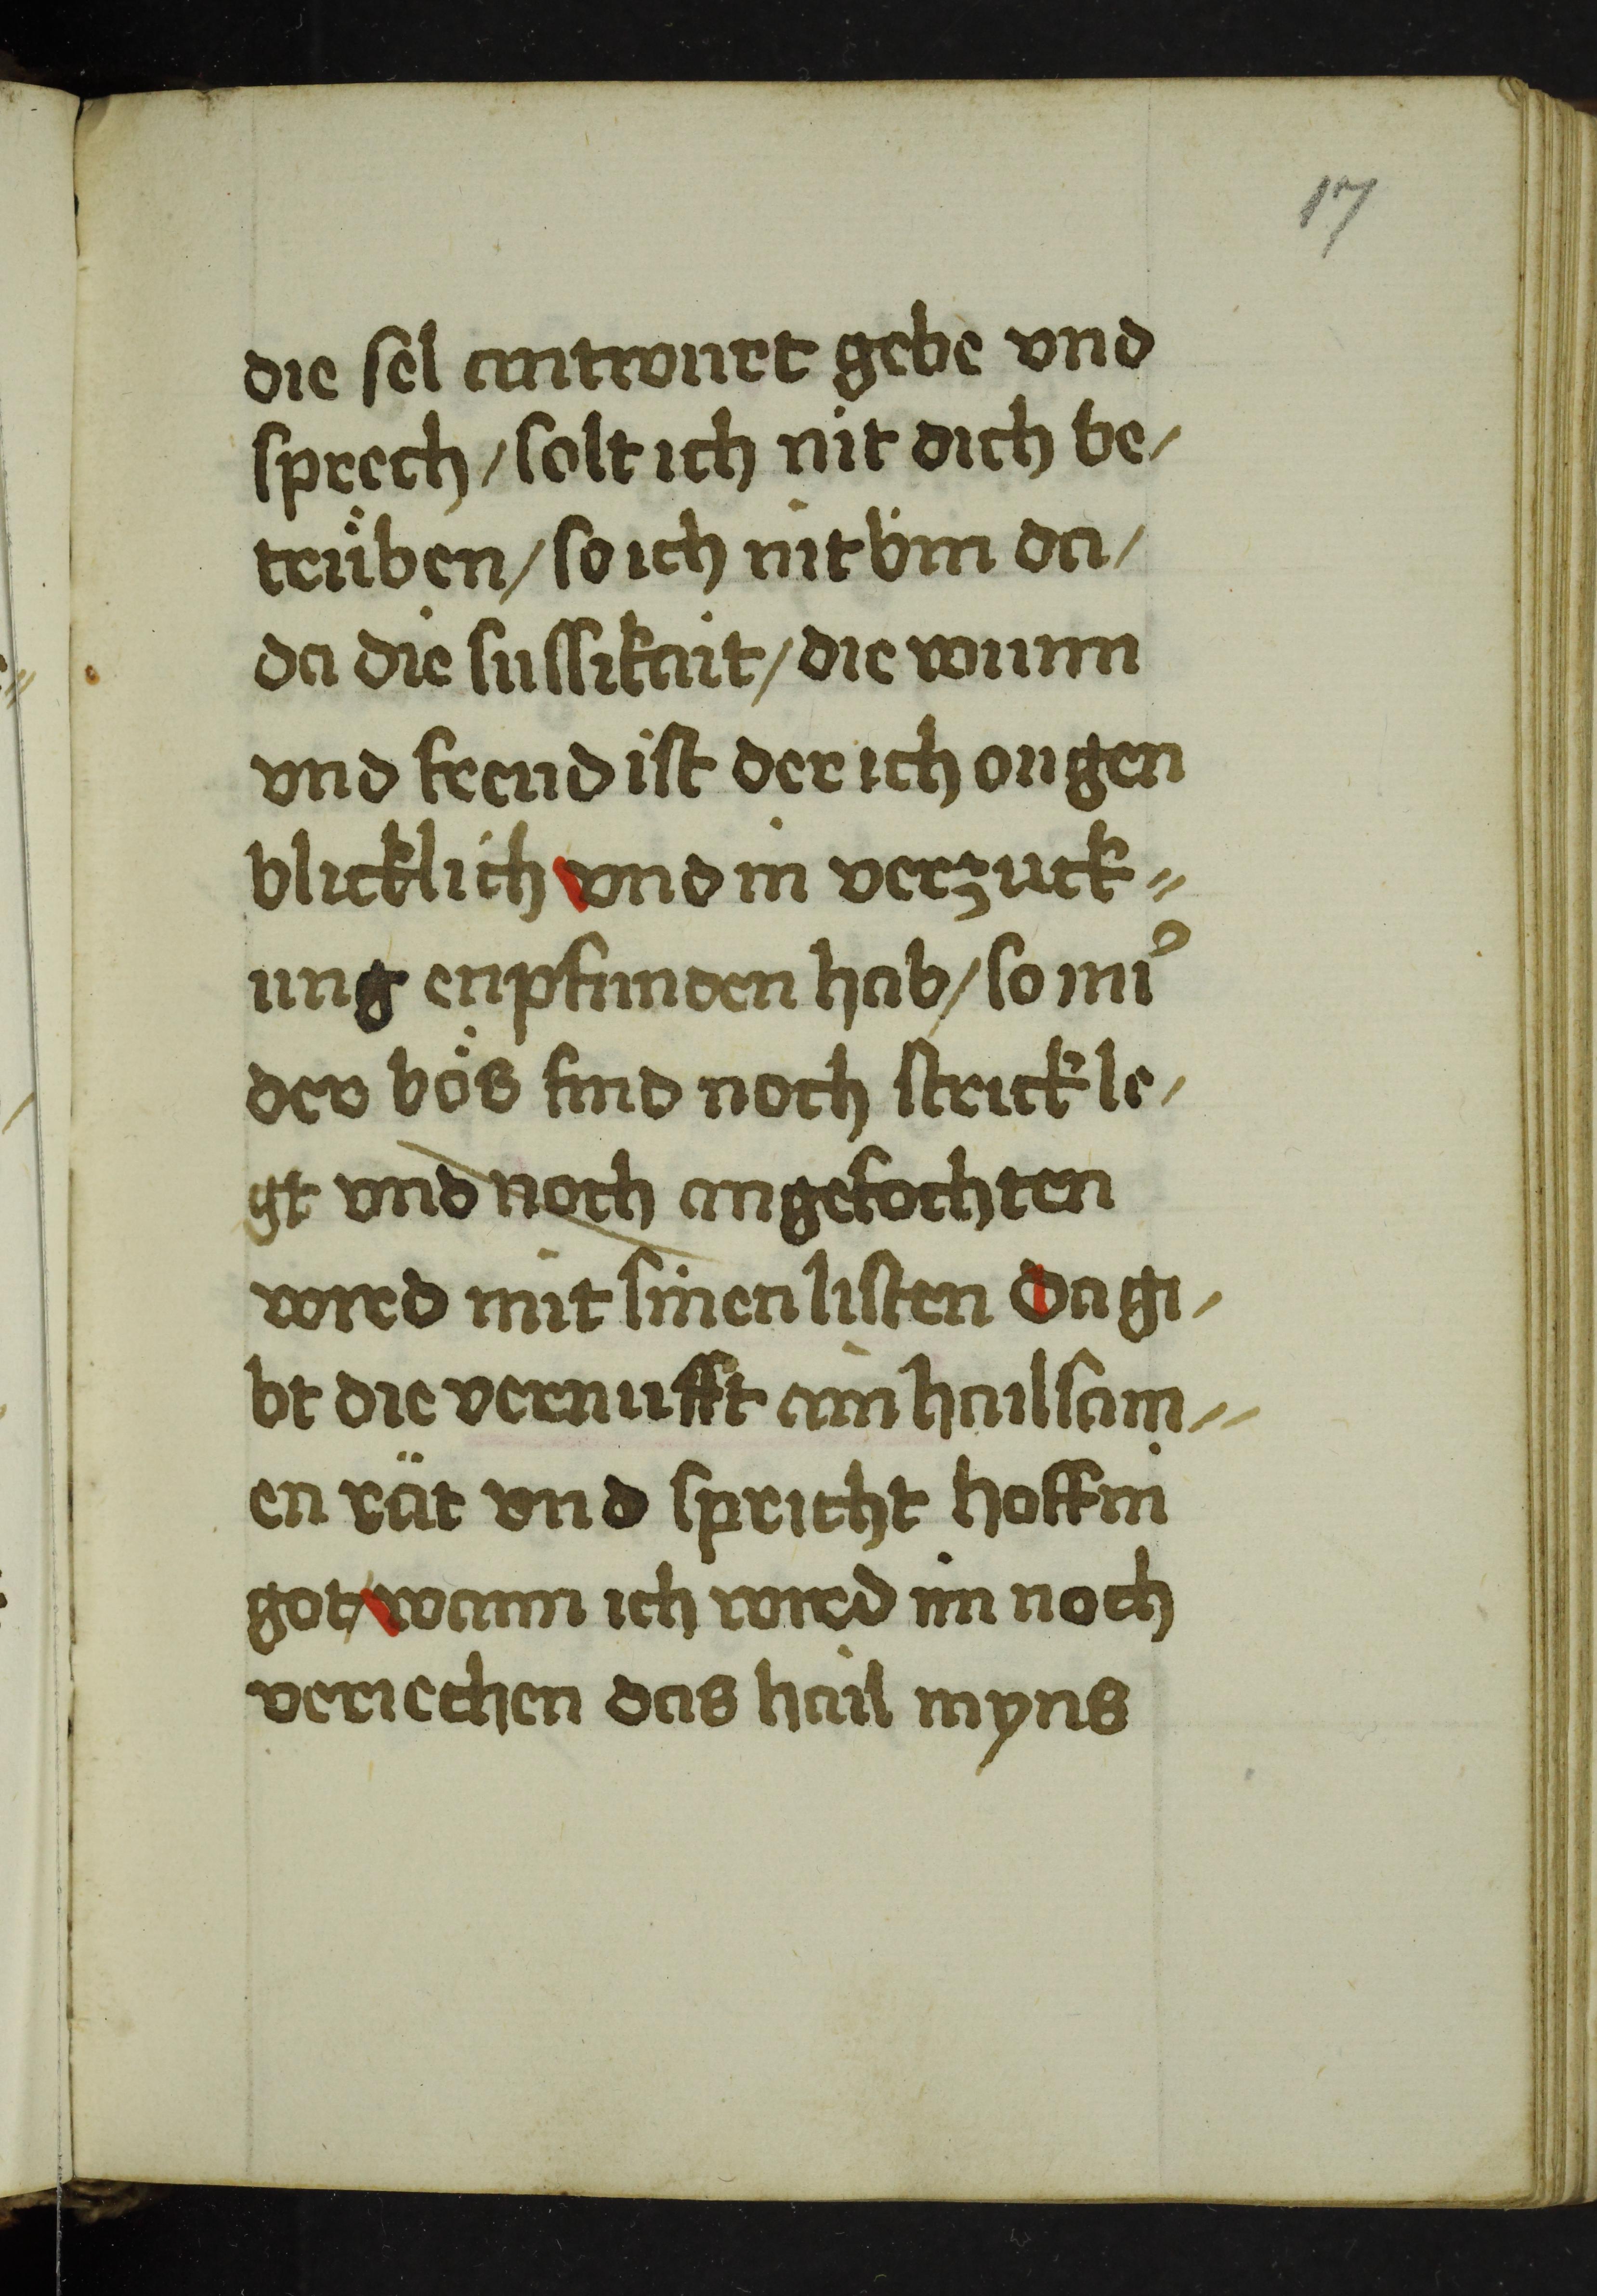 17
die sel antwurt gebe vnd
sprech / solt ich nit dich be/
trüben / so ich nit bin da /
da die sussikait / die wunn
vnd freud ist der ich ougen
blicklich vnd in verzuck//
ung enpfunden hab / so mir
der bös find noch strick le/
gt vnd noch angefochten
wird mit sinen listen Da gi/
bt die vernufft ain hailsam//
en rät vnd spricht hoff in
got / wann ich wird im noch
veriechen das hail myns